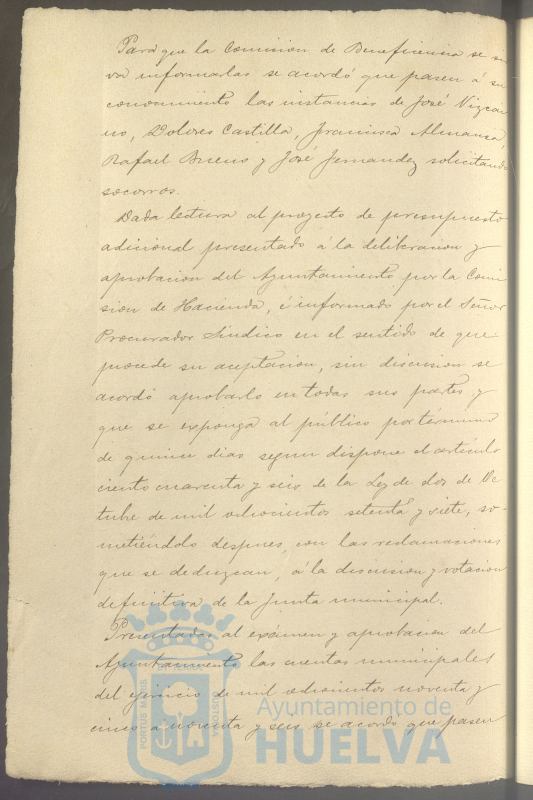 Para que la Comision de Beneficencia se sir
va informarlas se acordó que pasen á su
conocimiento las instancias de José Vizcai
no, Dolores Castilla, Francisca Almansa,
Rafael Bueno y José Fernandez solicitando
socorros.
Dada lectura al proyecto de presupuesto
adicional presentado á la deliberacion y
aprobacion del Ayuntamiento por la Comi
sion de Hacienda, é informado por el Señor
Procurador Sindico en el sentido de que
procede su aceptacion, sin discusion se
acordó aprobarlo en todas sus partes y
que se exponga al público por término
de quince dias segun dispone el artículo
ciento cuarenta y seis de la Ley de dos de Oc
tubre de mil ochocientos setenta y siete, so-
metiéndolo despues, con las reclamaciones
que se deduzcan, á la discusion y votacion
definitiva de la Junta municipal.
Presentadas al exámen y aprobacion del
Ayuntamiento las cuentas municipales
del ejercicio de mil ochocientos noventa y
cinco a noventa y seis se acordó que pasen
PORTUS MARIS
CUSTODIA
Ayuntamiento de
HUELVA